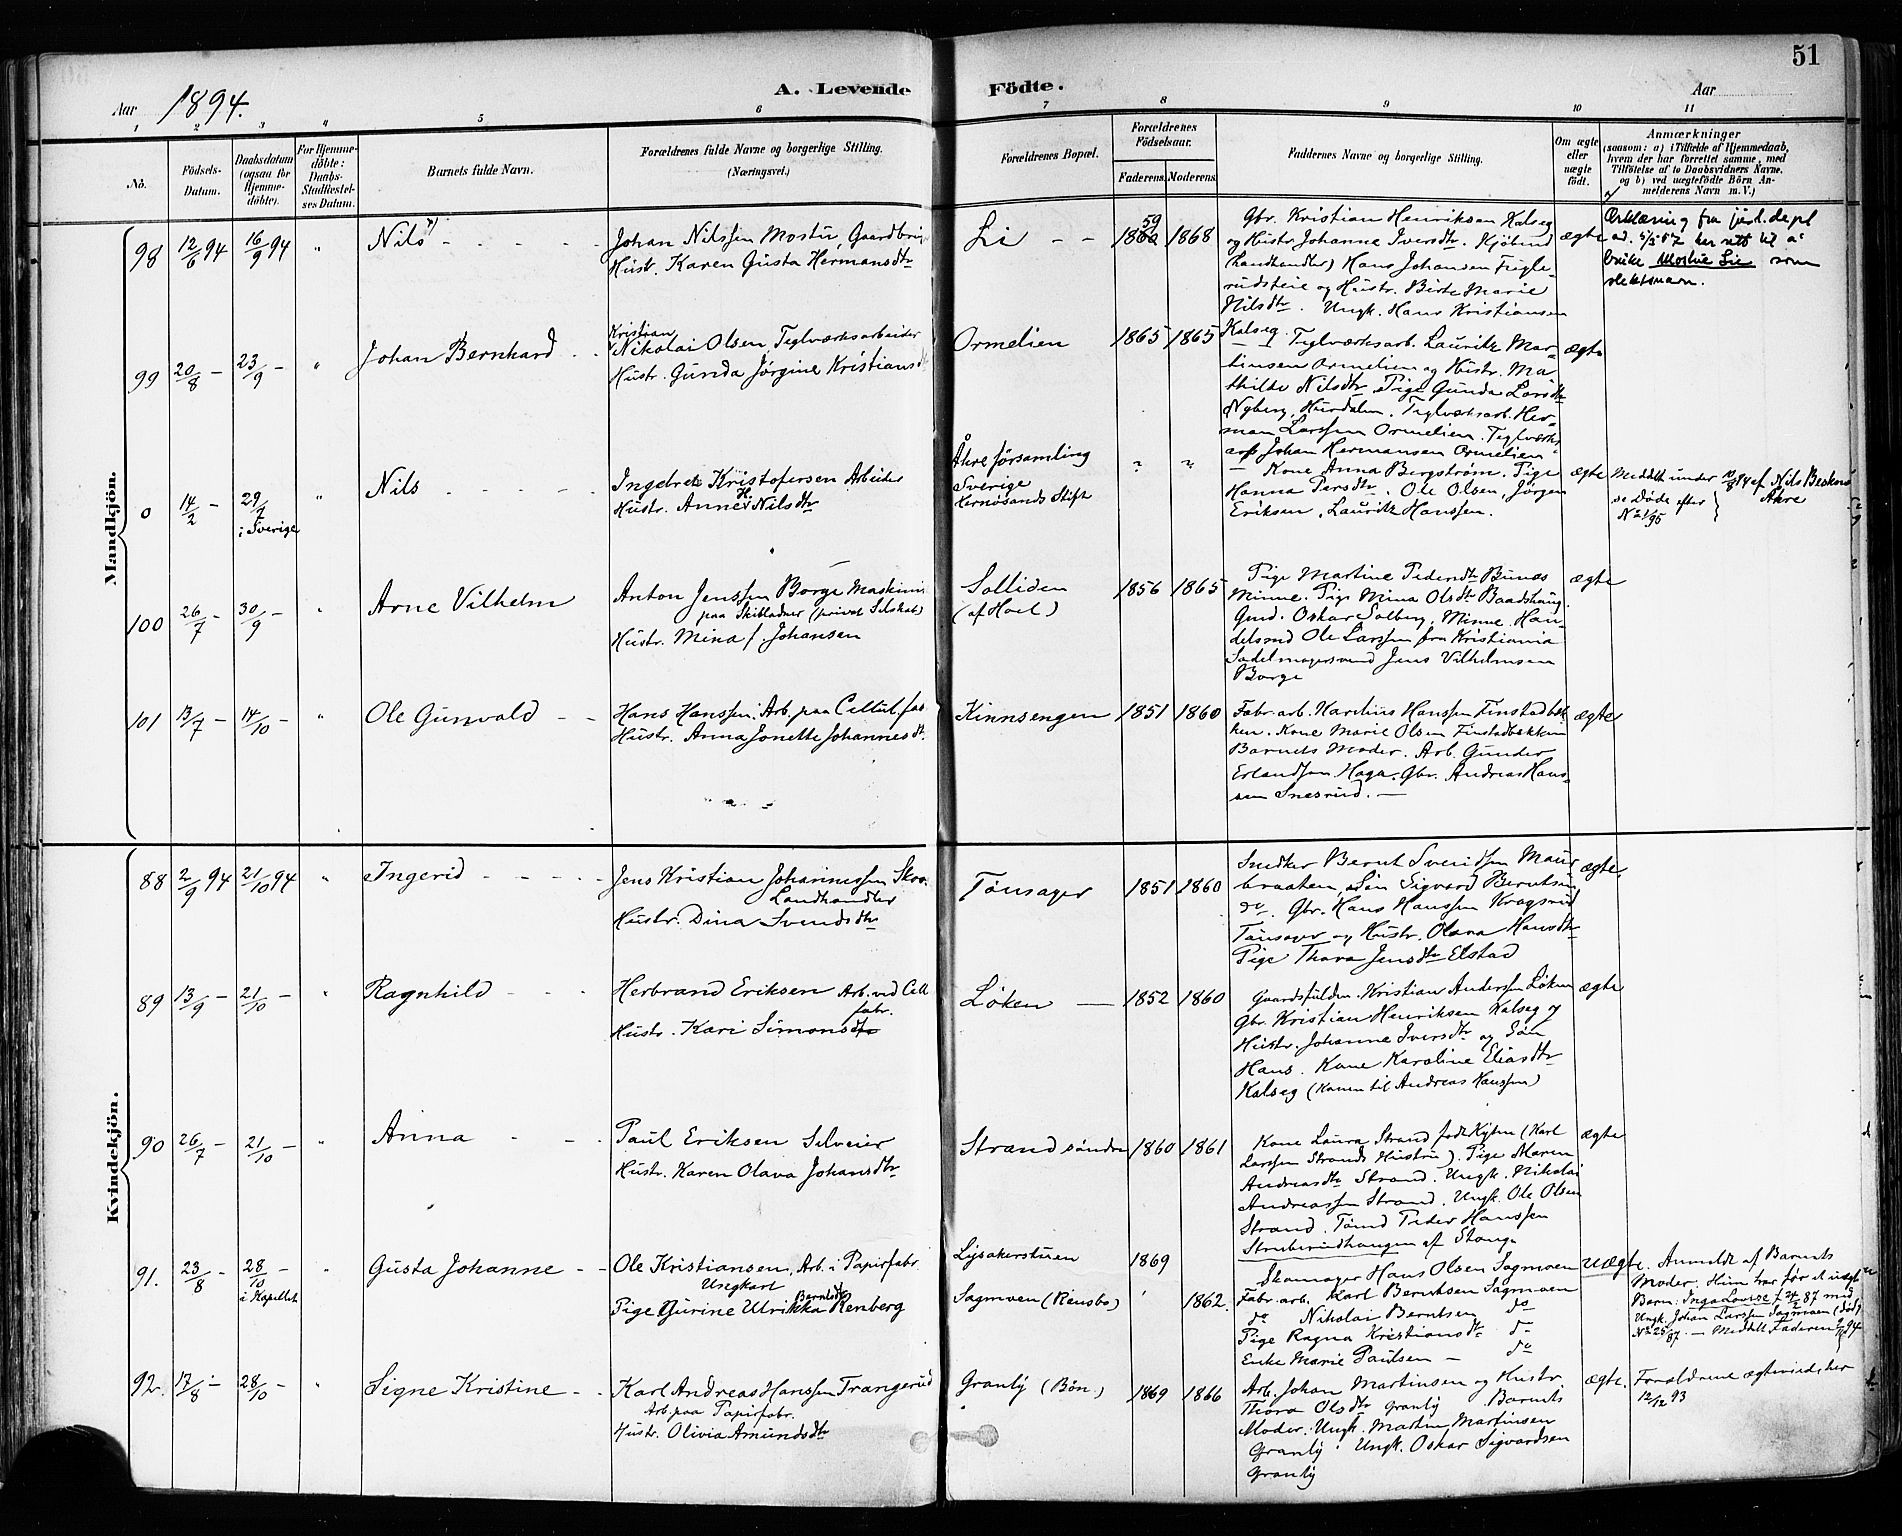 51
Aar 1894. A. Levende Födte. Aar
1 2 3 4 5 6 7 8 9 10 11
No.
Födsels-
Datum.
Daabsdatum
(ogsaa for
Hjemme-
döbte).
For Hjemme-
döbte:
Daabs-
Stadfæstel-
ses Datum.
Barnets fulde Navn.
Forældrenes fulde Navne og borgerlige Stilling.
(Næringsvei.)
Forældrenes Bopæl.
Forældrenes
Födselsaar.
Faderens. Moderens.
Faddernes Navne og borgerlige Stilling.
Om ægte
eller
uægte
födt.
Anmærkninger
(saasom: a) i Tilfælde af Hjemmedaab,
hvem der har forrettet samme, med
Tilföielse af to Daabsvidners Navne,
og b) ved uægtefödte Börn An-
melderens Navn m. V.)
Mandkjön.
98 12/6 94 16/9 94 " Nils
Johan Nilssen Mostu, Gaardbru
Hustr. Karen Gusta Hermansdtr
Li 59 1860 1868
Gbr. Kristian Henriksen Kalseg
og Hustr. Johanne Iversdtr.
(Landhandler) Hans Johansen
og Hustr. Birte Marie
Nilsdtr. Ungk. Hans Kristiansen
Kalseg.
ægte
Erklæring fra just.dept
ad. 5/5 57 har rett til å
bruke Mostue Lie som
slektsnavn.
99 20/8 – 23/9 – " Johan Bernhard
Kristian
Nikolai Olsen Teglværksarbeider
Hustr. Gunda Jørgine Kristiansdt
Ormelien 1865 1865
Teglværksarb. Lauritz Mar-
tinsen Ormelien og Hustr. Ma-
thilde Nilsdtr. Pige Gunda Larsdtr
Nyberg, Hurdalen. Teglværksarb. Her-
man Larssen Ormelien. Teglværks
arb Johan Hermansen Ormelien
ægte
0 14/2 – 29/7 i Sverige " Nils
Ingebret Kristofersen Arbeider
Hustr. Anne H. Nilsdtr
Åkre församling
Sverige
Hernösands Stift
" "
Kone Anna Bergström. Pige
Hanna Persdtr. Ole Olsen, Jørgen
Eriksen, Lauritz Hanssen.
ægte
Meddelt under 10/8 94 af Nils
se Døde efter
No 1/95
Åkre
100 26/7 – 30/9 – " Arne Vilhelm
Anton Jenssen Borge Maskinm
paa Skibladner (privat Selskab)
Hustr. Mina f. Johansen
Solliden
(af Hoel)
1856 1865
Pige Martine Pedersdtr Bunes
Minne. Pige Mina Olsdtr Baadshaug
Gmd. Oskar Solberg, Minne. Han-
delsmd Ole Larssen fra Kristiania
Sadelmagersvend Jens Vilhelmsen
Borge
ægte
101 13/7 – 14/10 – " Ole Gunvald
Hans Hanssen. Arb. paa Cellul.fab
Hustr. Anna Jonette Johannesdt.
Kinnsengen 1851 1860
Fabr. arb. Martinus Hanssen Finstadbæk
ken. Kone Marie Olsen Finstadbækken
Barnets Moder. Arb. Gunder
Erlandsen Haga. Gbr. Andreas Hans-
sen Snesrud. —
ægte
Kvindekjön.
88 2/9 94 21/10 94 " Ingerid
Jens Kristian Johannessen
Landhandler
Hustr. Dina Svendsdtr
Tønsager 1851 1860
Snedker Bernt Svendsen Maur
braaten, Søn Sigvard Berntsen
do. Gbr. Hans Hanssen Kragsrud
Tønsager og Hustr. Olava Hansdtr
Pige Thora Jensdtr Elstad
ægte.
89 13/9 – 21/10 – " Ragnhild
Herbrand Eriksen Arb. ved Cell
fabr.
Hustr. Kari Simonsdtr
Løken — 1852 1860
Gaardsfulдm. Kristian Andersen Løken
Gbr. Kristian Henriksen Kalseg og
Hustr. Johanne Iversdtr og Søn
Hans. Kone Karoline Eliasdtr
Kalseg (Konen til Andreas Hanssen)
ægte
90 26/7 – 21/10 – " Anna
Paul Eriksen Selveier
Hustr. Karen Olava Johansdtr
Strand søndre 1860 1861
Kone Laura Strand født Kysen (Karl
Larssen Strands Hustru). Pige Maren
Andreasdtr Strand. Ungk. Nikolai
Andreassen Strand. Ungk. Ole Olsen
Strand. Tømd Peder Hanssen
Struberudhaugen af Stange
ægte
91. 23/8 – 28/10 – i Kapellet " Gusta Johanne
Ole Kristiansen, Arb. i Papirfabr.
Ungkarl
Pige Gurine Ulrikka Berntsdt Renberg
Lysakerstuen 1869
Sagmoen (Rensbo) 1862.
Skomager Hans Olsen Sagmoen
Fabr. arb. Karl Berntsen Sagmoen
do Nikolai Berntsen do
Pige Ragna Kristiansdtr do
Enke Marie Paulsen — do
uægte.
Anmeldt af Barnets
Moder. Hun har før et uægte
Barn: Inga Lovise f. 24/2 87 med
Ungk. Johan Larssen Sagmoen (død)
No 25/87. — Meddelt Faderen
92. 17/8 – 28/10 – " Signe Kristine
Karl Andreas Hanssen Trangerud
Arb. paa Papirfabr.
Hustr. Olivia Amundsdtr
Granly (Bøn.) 1869 1866
Arb. Johan Martinsen og Hustr
Thora Olsdtr Granly Barnets
Moder. Ungk. Martin Martinsen
Granly. Ungk. Oskar Sigvardsen
Granly
ægte.
Forældrene ægteviede her
12/12 93